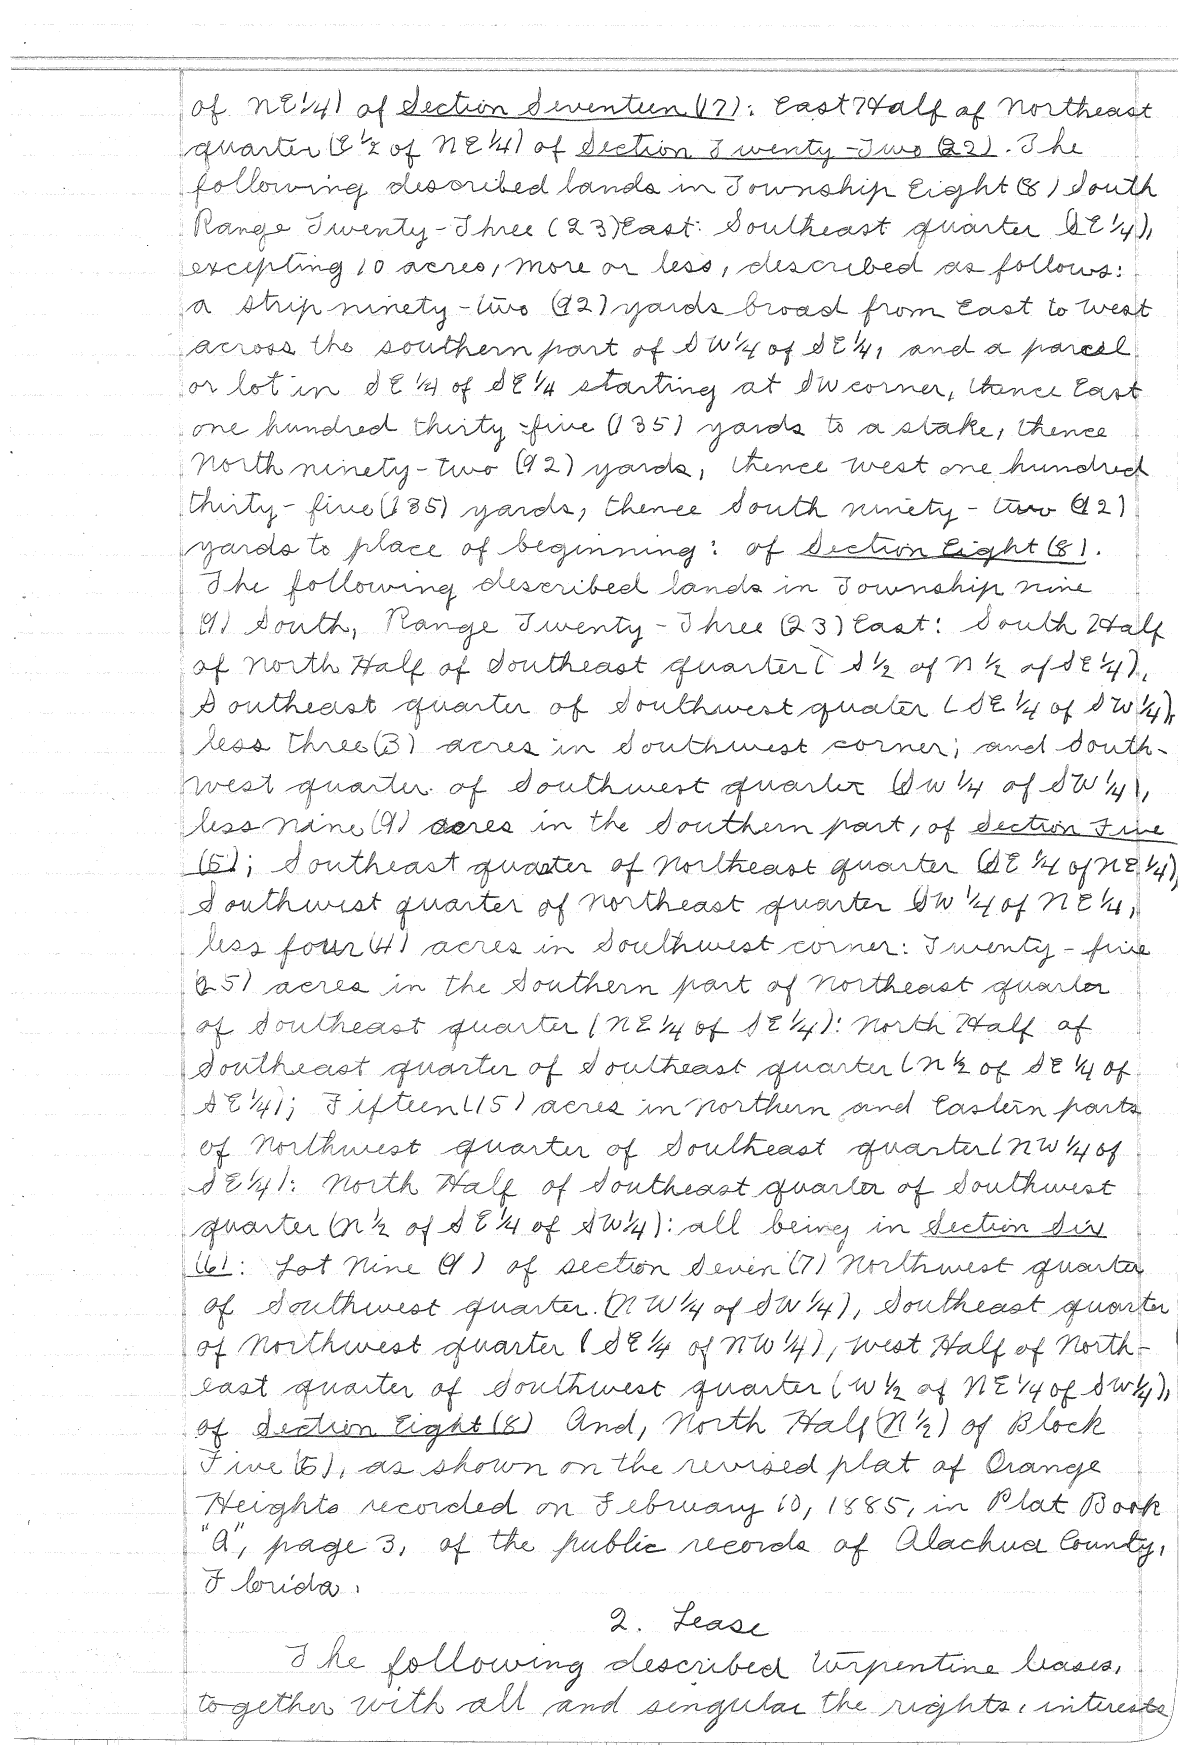 of NE1/4) of Section Seventeen (17): East Half of Northeast
quarter (E 1/2 of NE1/4) of Section Twenty-Two (22). The
following described lands in Township Eight (8) South
Range Twenty-Three (23) East: Southeast quarter (SE1/4),
excepting 10 acres, more or less, described as follows:
a strip ninety-two (92) yards broad from East to West
across the southern part of SW1/4 of SE1/4, and a parcel
or lot in SE1/4 of SE1/4 starting at SW corner, thence East
one hundred thirty-five (135) yards to a stake, thence
North ninety-two (92) yards, thence West one hundred
thirty-five (135) yards, thence South ninety-two (92)
yards to place of beginning: of Section Eight (8).
The following described lands in Township nine
(9) South, Range Twenty-Three (23) East: South Half
of North Half of Southeast quarter (S1/2 of N1/2 of SE1/4),
Southeast quarter of Southwest quater (SE1/4 of SW1/4),
less three (3) acres in Southwest corner; and South-
west quarter of Southwest quarter (SW1/4 of SW1/4),
less nine (9) acres in the Southern part, of Section Five
(5); Southeast quaster of Northeast quarter (SE1/4 of NE1/4),
Southwest quarter of Northeast quarter SW1/4 of NE1/4,
less four (4) acres in Southwest corner: Twenty-five
(25) acres in the Southern part of Northeast quarter
of Southeast quarter (NE1/4 of SE1/4): North Half of
Southeast quarter of Southeast quarter (N1/2 of SE1/4 of
SE1/4); Fifteen (15) acres in Northern and Eastern parts
of Northwest quarter of Southeast quarter (NW1/4 of
SE1/4): North Half of Southeast quarter of Southwest
quarter (N1/2 of SE1/4 of SW1/4): all being in Section Six
(6): Lot Nine (9) of section Seven (7) Northwest quarter
of Southwest quarter. (NW1/4 of SW1/4), Southeast quarter
of Northwest quarter (SE1/4 of NW1/4), West Half of North-
east quarter of Southwest quarter (W1/2 of NE1/4 of SW1/4),
of Section Eight (8) And, North Half (N1/2) of Block
Five (5), as shown on the revised plat of Orange
Heights recorded on February 10, 1885, in Plat Book
"A", page 3, of the public records of Alachua County,
Florida.
2. Lease
The following described turpentine leases,
together with all and singular the rights, interests